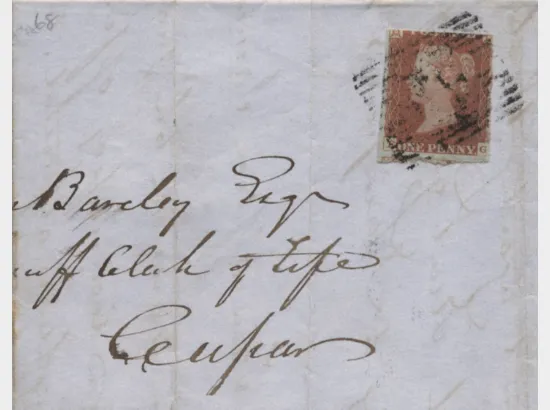 68
ONE PENNY
G
Barclay Esqr
Clerk of Fife
Cupar